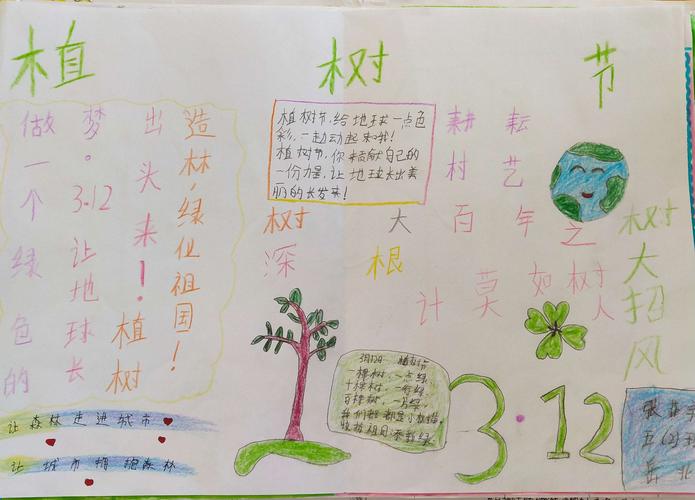 植树节
做一个绿色的
梦。3.12让地球长
出头来！植树
造林,绿化祖国！
植树节,给地球一点色
彩,一起动起来哦！
植树节,你来贡献自己的
一份力量,让地球长出美
丽的长发来！
耕耘
村艺
树大百年之
深根计莫如树人
树大招风
一棵树 一点绿
十棵树
百棵树
3.12
让森林走进城市
让城市拥抱森林